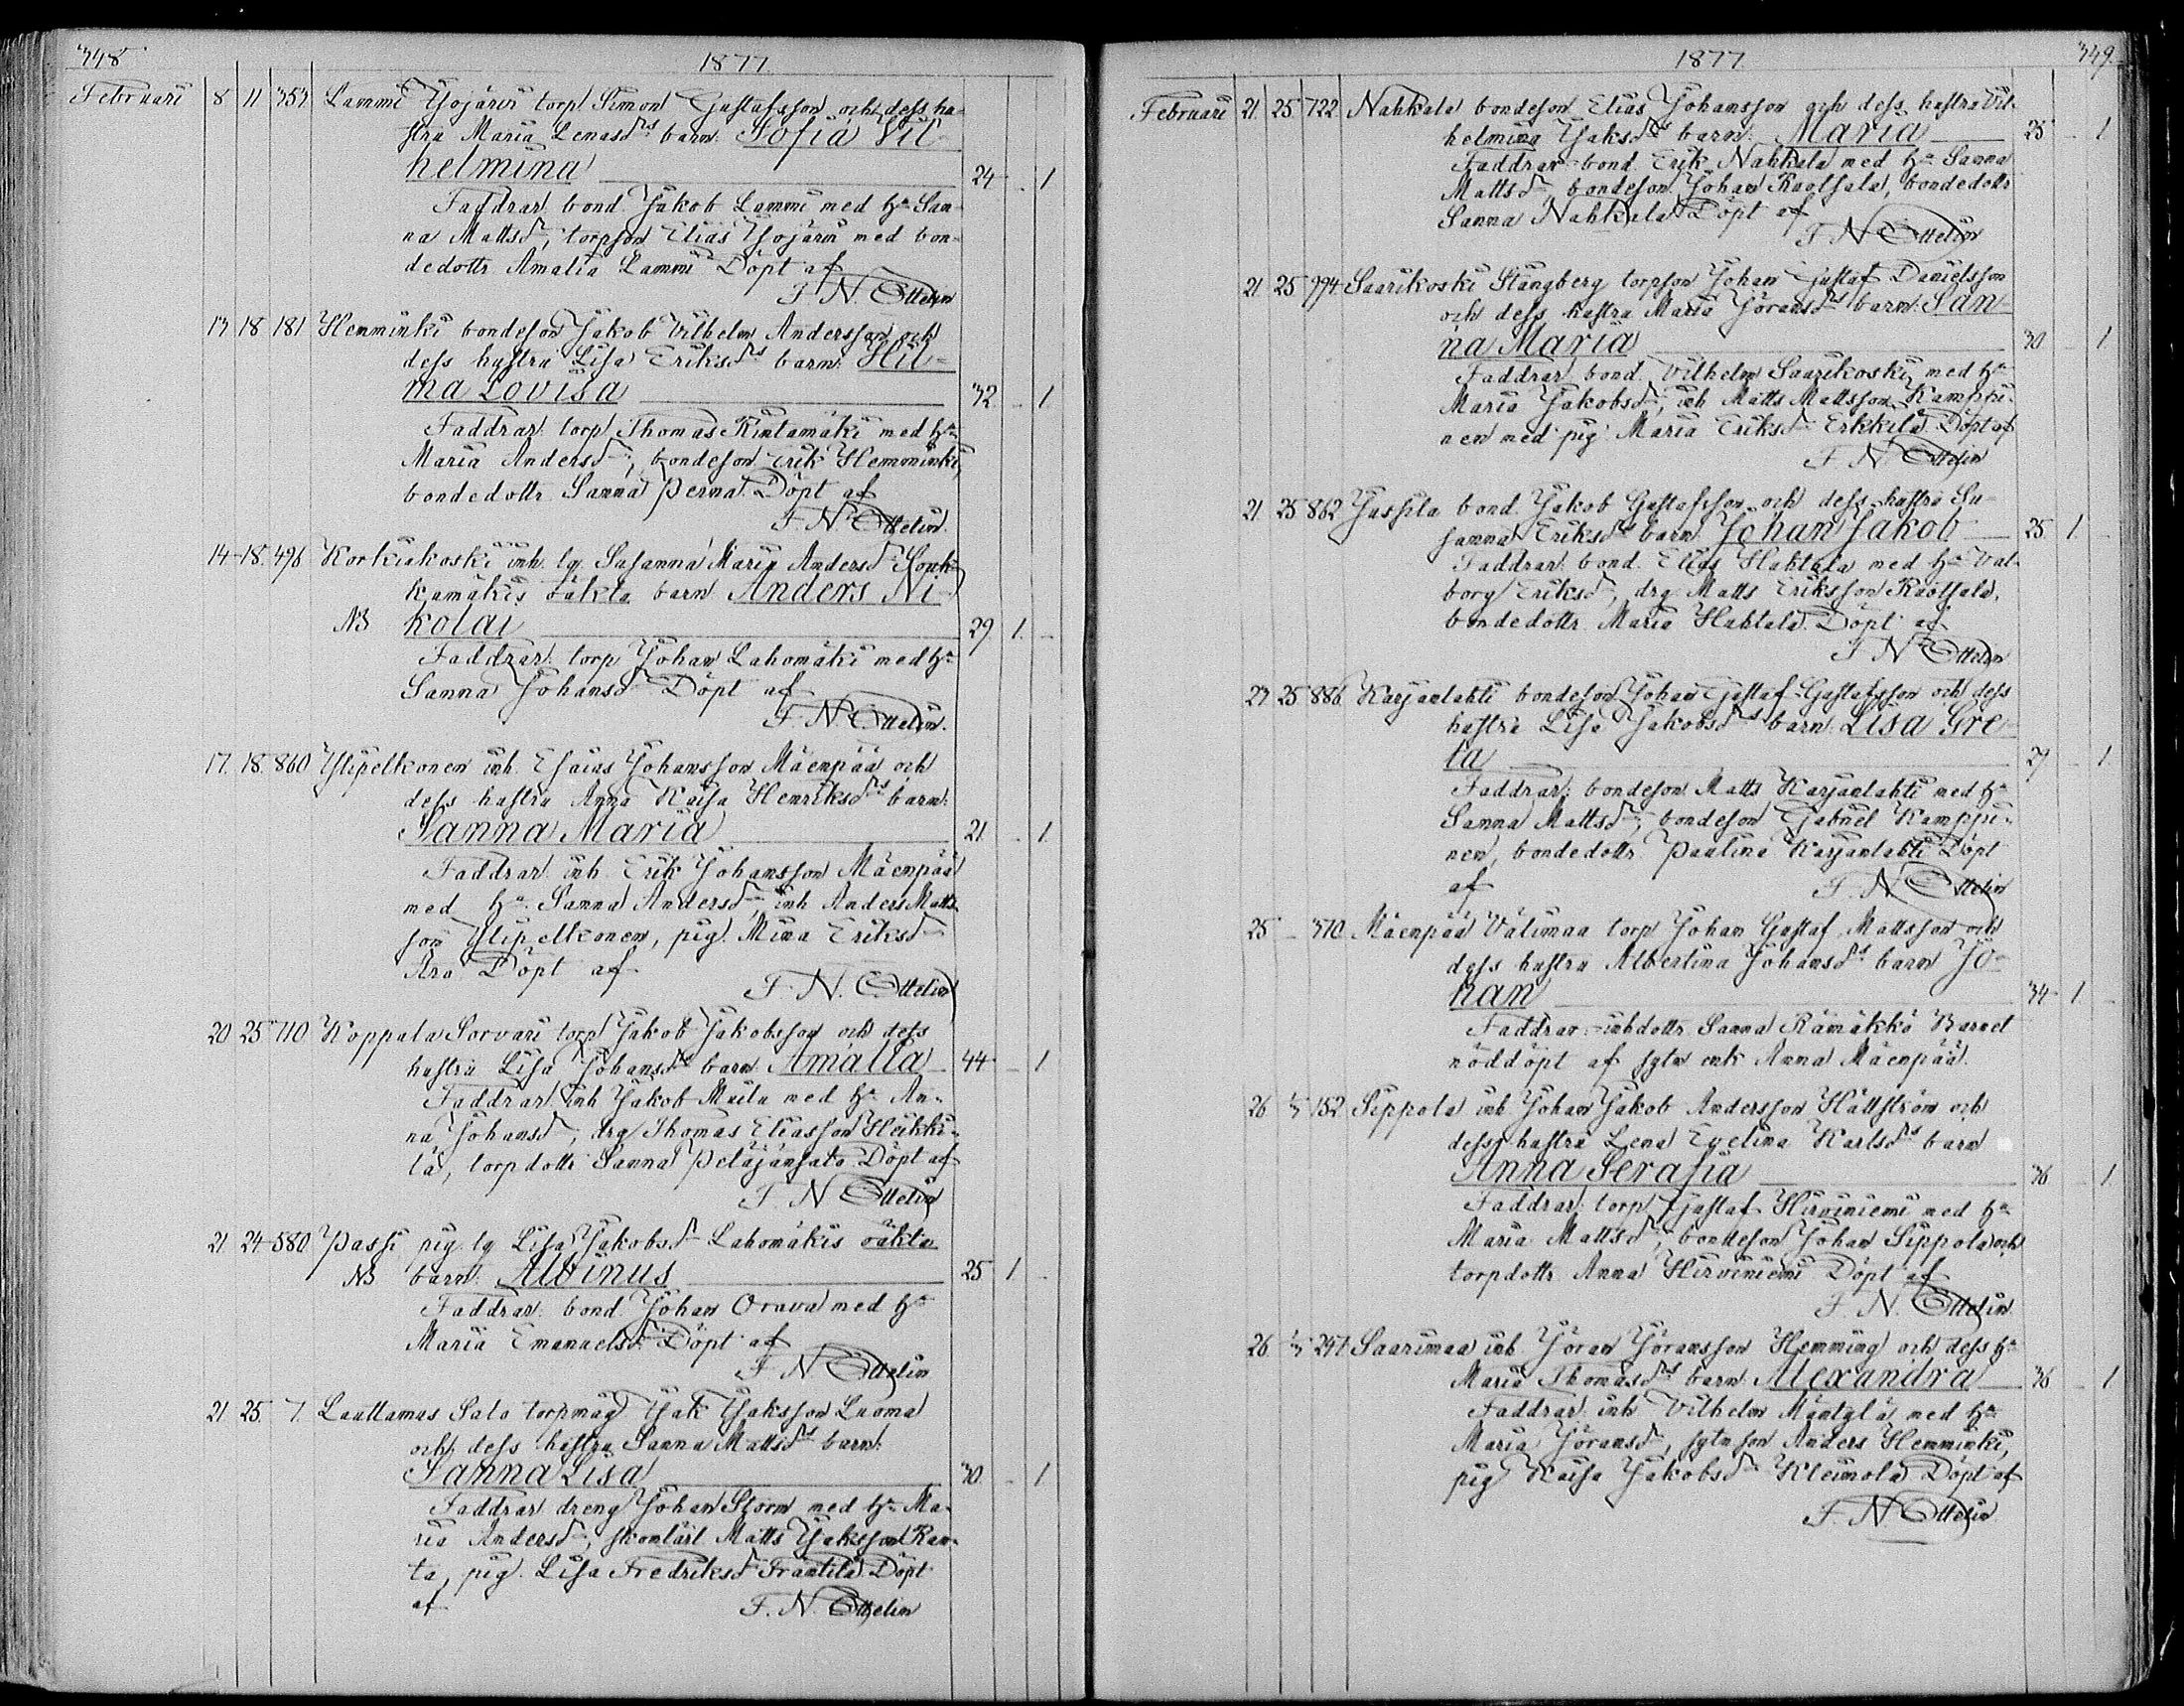 348
1877
Februari 8 11 353 Lammi Yojärvi torp Simon Gustafsson och dess hu-
stru Maria Lenasdrs barn: Sofia Vil-
helmina 24 - 1
Faddrar: bond. Jakob Lammi med ha San-
na Mattsdr, torpson Elias Yojärvi med bon-
dedottr Amalia Lammi Döpt af
F. N. Ottelin
13 18 181 Hemminki bondeson Jakob Vilhelm Andersson och
dess hustru Lisa Eriksdrs barn: Hil-
ma Lovisa 32 - 1
Faddrar: torp Thomas Rintamäki med ha
Maria Andersdr, bondeson Erik Hemminki,
bondedottr Sanna Perna. Döpt af
F. N. Ottelin.
14 18 496 Korkiakoski inh. lg. Susanna Maria Andersdr
kamäkis oäkta barn Anders Ni-
NB kolai 29. 1. -
Faddrar: torp Johan Lahomäki med ha
Sanna Johansdr Döpt af
F. N. Ottelin.
17. 18. 860 Ylipelkonen inh. Esaias Johansson Mäenpää och
dess hustru Anna Kaisa Henriksdrs barn:
Sanna Maria 21. - 1.
Faddrar: inh. Erik Johansson Mäenpää
med ha Sanna Andersdr, inh Anders Matts-
son Ylipelkonen, pig. Mina Eriksdr
Aro Döpt af
F. N. Ottelin
20 25 710 Koppala Sorvari torp Jakob Jakobsson och dess
hustru Lisa Johansdrs barn: Amalia 44 - 1
Faddrar: inh Jakob Muila med ha An-
na Johansdr, drg Thomas Eliasson Heikki-
lä, torpdottr Sanna Peläjänsalo Döpt af
F. N. Ottelin
21 24 580 Passi pig. lg. Lisa Jakobsdr Lahomäkis oäkta
NB barn: Albinus 25 1 -
Faddrar: bond. Johan Orava med ha
Maria Emanuelsdr Döpt af
F. N. Ottelin
21 25. 7. Lauttamus Salo torpmåg Jak Jaksson Luoma
och dess hustru Sanna Mattsdrs barn:
Sanna Lisa 30. - 1
Faddrar: dreng Johan Storm med ha Ma-
ria Andersdr, skomlärl Matts Jaksson Ran-
ta, pig. Lisa Fredriksdr Frantila. Döpt
af
F. N. Ottelin
1877.
349.
Februari 21. 25. 722. Nahkala bondeson Elias Johansson och dess hustru Vil-
helmina Jaksdrs barn: Maria 25 - 1
Faddrar: bond. Erik Nahkala med ha Sanna
Mattsdr, bondeson Johan Raotsala, bondedottr
Sanna Nahkala Döpt af
F. N. Ottelin
21 25 994. Saarikoski Stångberg torpson Johan Gustaf Danielsson
och dess hustru Maria Jöransdrs barn: San-
na Maria 30 - 1
Faddrar: bond. Vilhelm Saarikoski med ha
Maria Jakobsdr, inh Matts Mattsson Kamppi-
nen med pig. Maria Eriksdr Erkkilä. Döpt af
F. N. Ottelin
21 25 862 Jussila bond. Jakob Gustafsson och dess hustru Su-
sanna Eriksdrs barn: Johan Jakob 25. 1. -
Faddrar: bond. Elias Huhtala med ha Val-
borg Eriksdr, drg Matts Eriksson Raotsala,
bondedottr Maria Huhtala. Döpt af
F. N. Ottelin
23 25 886. Karjanlahti bondeson Johan Gustaf Gustafsson och dess
hustru Lisa Jakobsdrs barn: Lisa Gre-
ta 27 - 1
Faddrar: bondeson Matts Karjanlahti med ha
Sanna Mattsdr, bondeson Gabriel Kamppi-
nen, bondedottr Paulina Karjanlahti Döpt
af F. N. Ottelin
25 - 370. Mäenpää Välimaa torp Johan Gustaf Mattsson och
dess hustru Albertina Johansdrs barn Jo-
han 34 1 -
Faddrar: inhdottr Sanna Rämäkkö Barnet
nöddöpt af sytn enk Anna Mäenpää.
26 152 Sippola inh Johan Jakob Andersson Hällström och
dess hustru Lena Evelina Karlsdrs barn
Anna Serafia 36 - 1.
Faddrar: torp Gustaf Hirviniemi med ha
Maria Mattsdr, bondeson Johan Sippola och
torpdottr Anna Hirviniemi Döpt af
F. N. Ottelin
26 297 Saarimaa inh. Jöran Jöransson Hemming och dess ha
Maria Thomasdrs barn: Alexandra 36 - 1
Faddrar: inh Vilhelm Mäntylä med ha
Maria Jöransdr, sytnson Anders Hemminki,
pig Kaisa Jakobsdr Kleimola Döpt af
F. N. Ottelin